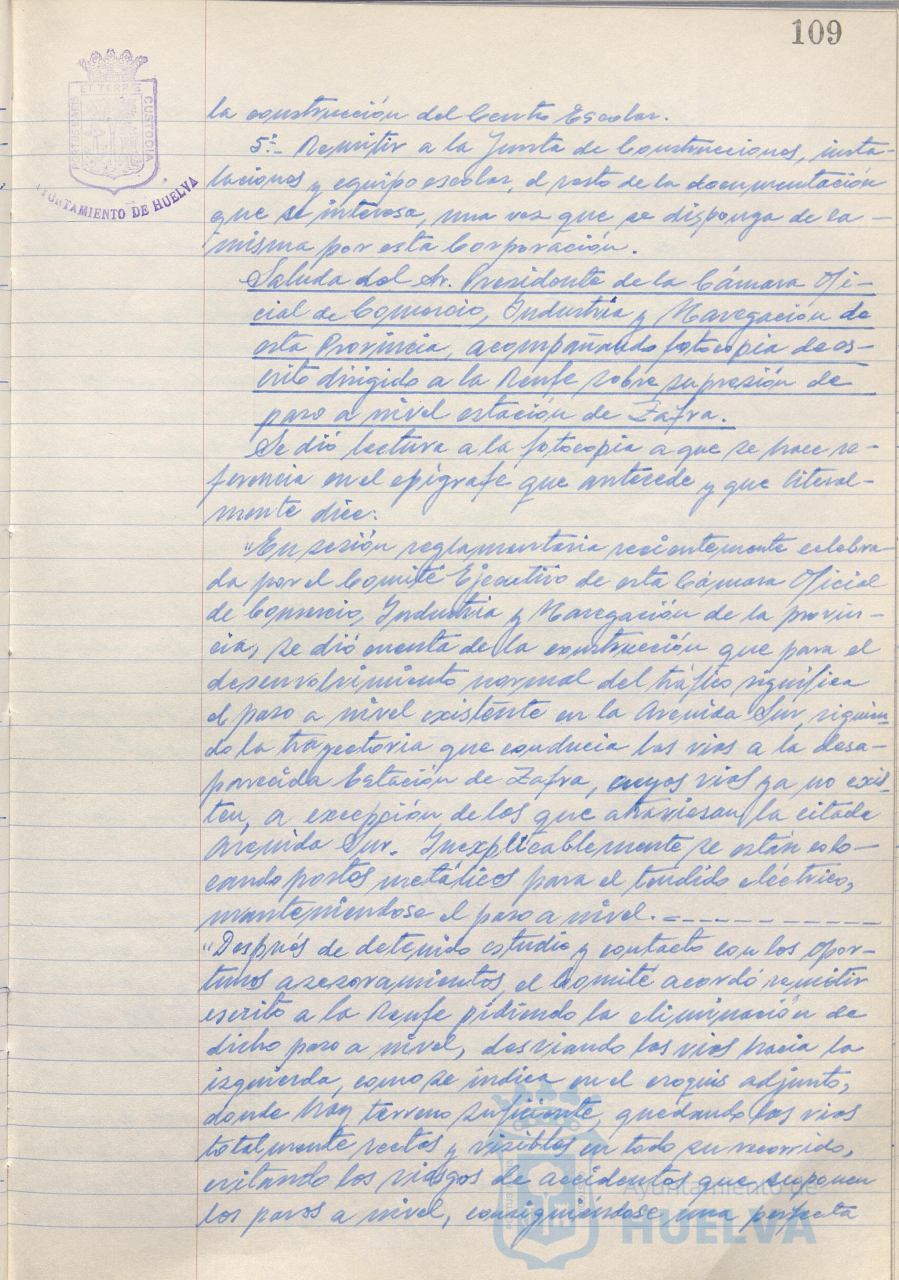 109
ET TERRIS
PORTUS MARIS
CUSTODIA
AYUNTAMIENTO DE HUELVA
la construcción del Centro Escolar.
5º.- Remitir a la Junta de Construcciones, insta-
laciones y equipo escolar, el resto de la documentación
que se interesa, una vez que se disponga de la -
misma por esta Corporación.
Saluda del Sr. Presidente de la Cámara Ofi-
cial de Comercio, Industria y Navegación de
esta Provincia, acompañando fotocopia de es-
crito dirigido a la Renfe sobre supresión de
paso a nivel estación de Zafra.
Se dió lectura a la fotocopia a que se hace re-
ferencia en el epígrafe que antecede y que literal-
mente dice:
"En sesión reglamentaria recientemente celebra-
da por el Comité Ejecutivo de esta Cámara Oficial
de Comercio, Industria y Navegación de la provin-
cia, se dió cuenta de la construcción que para el
desenvolvimiento normal del tráfico significa
el paso a nivel existente en la Avenida Sur, siguien-
do la trayectoria que conducia las vias a la desa-
parecida Estación de Zafra, cuyas vias ya no exis-
ten, a excepción de las que atraviesan la citada
Avenida Sur. Inexplicablemente se están colo-
cando postes metálicos para el tendido eléctrico,
manteniendose el paso a nivel. - - - - - - - -
"Después de detenido estudio y contacto con los opor-
tunos asesoramientos, el Comité acordó remitir
escrito a la Renfe pidiendo la eliminación de
dicho paso a nivel, desviando las vias hacia la
izquierda, como se indica en el croquis adjunto,
donde hay terreno suficiente, quedando las vias
totalmente rectas y visibles en todo su recorrido,
evitando los riesgos de accidentes que suponen
los pasos a nivel, consiguiéndose una perfecta
Ayuntamiento de
HUELVA